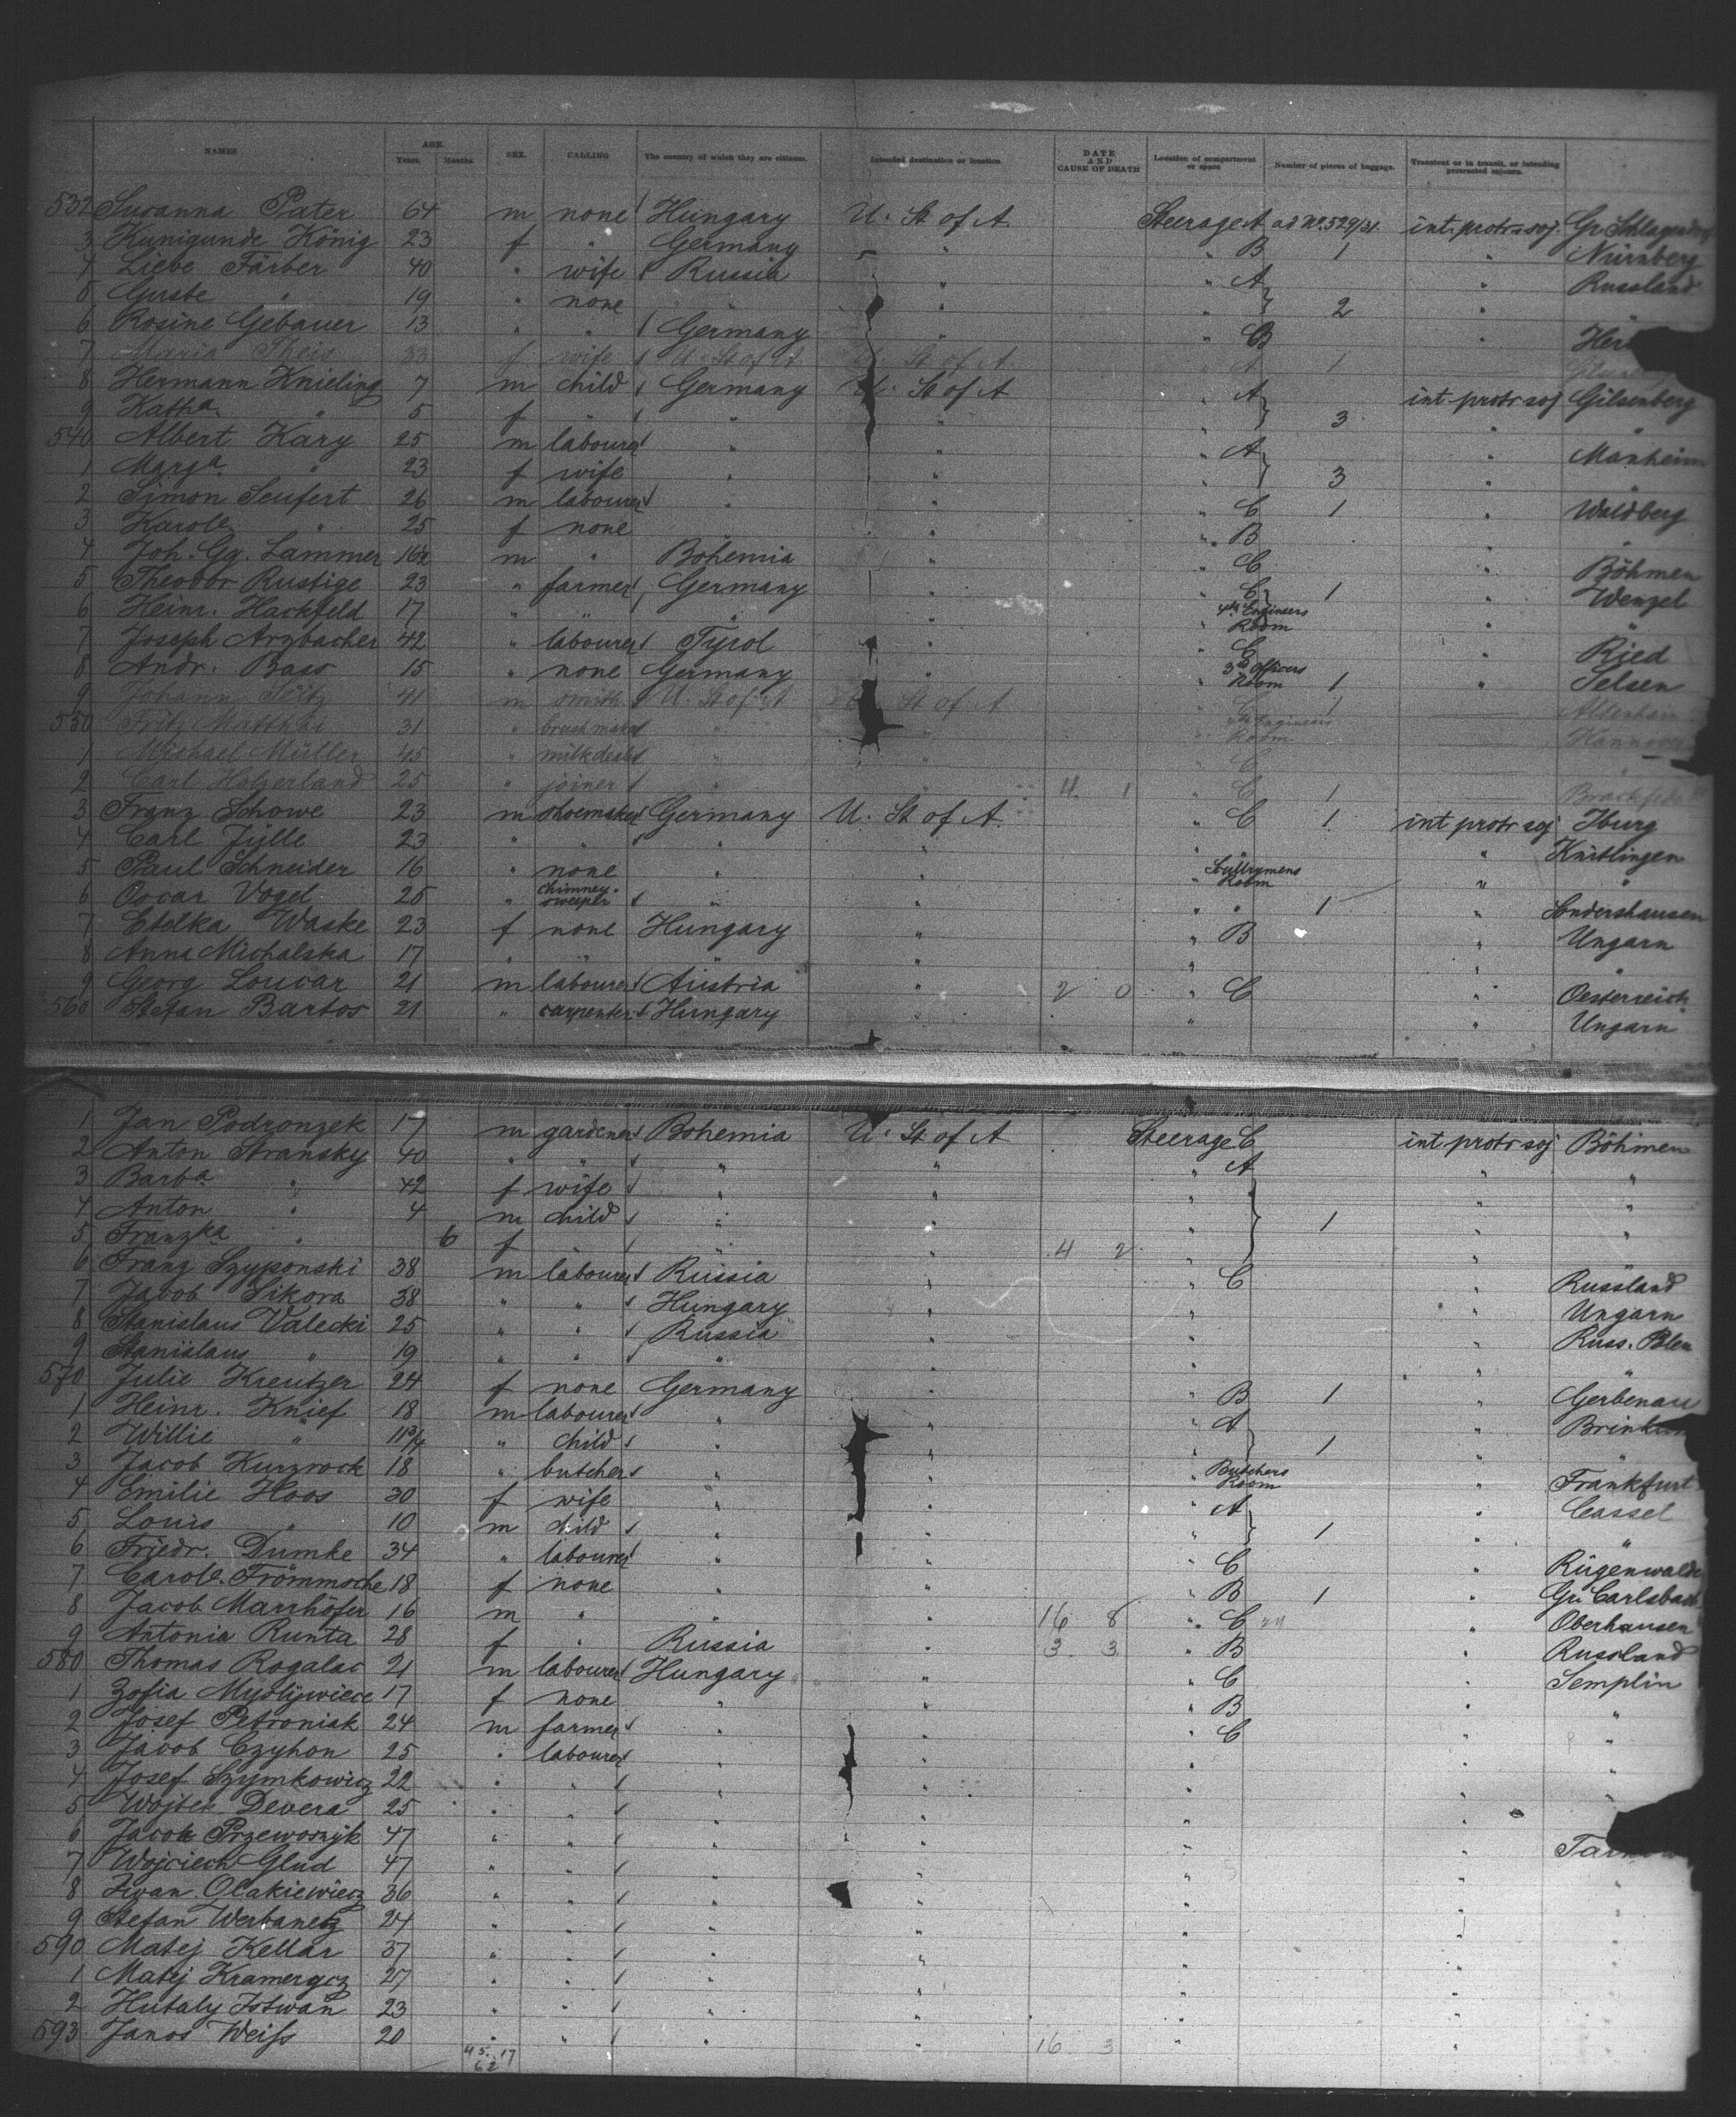 NAMES AGE. Years. Months SEX. CALLING The country of which they are citizens. Intended destination or location. DATE AND CAUSE OF DEATH Location of compartment or space Number of pieces of baggage. Transient or in transit, or intending protracted sojourn.
532 Susanna Pater 64 m none Hungary U. St of A. Steerage A ad No. 529/31 int. protr. soj. Gr. Schlagendorf
3 Kunigunde König 23 f " Germany " " B 1 " Nürnberg
4 Liebe Färber 40 " wife Russia " " A " Russland
5 Guste " 19 " none " " " 2 " "
6 Rosine Gebauer 13 " " Germany " " B "
7 Maria Theis 33 f wife U. St of A U. St of A " A 1
8 Hermann Knieling 7 m child Germany U. St of A " A int protr soj Gilsenberg
9 Katha. " 5 f " " " " 3 " "
540 Albert Kary 25 m labourer " " " A " Manheim
1 Marga. " 23 f wife " " " 3 " "
2 Simon Seufert 26 m labourer " " " C 1 " Waldberg
3 Karole " 25 f none " " B " "
4 Joh. Gg. Lammer 16½ m " Bohemia " " C " Böhmen
5 Theodor Rustige 23 " farmer Germany " " C 1 " Wenzel
6 Heinr. Hackfeld 17 " " " " " 4th Engineers Room " "
7 Joseph Arzbacher 42 " labourer Tyrol " " C " Ried
8 Andr. Bass 15 " none Germany " " 3rd Officers Room 1 " Selsen
9 Johann Seitz 41 m smith U. St of A U. St of A " C 1
550 Fritz Matthäi 31 " brushmaker " " " Engineers Room Hannover
1 Michael Müller 45 " milkdealer " " " C "
2 Carl Holzerland 25 " joiner " " 4. 1 " C 1
3 Franz Schowe 23 m shoemaker Germany U. St of A. " C 1 int protr soj Iburg
4 Carl Jülle 23 " " " " " " " Knitlingen
5 Paul Schneider 16 " none " " " Scullrymens Room " "
6 Oscar Vogel 25 " chimney-sweeper " " " " 1 " Sondershausen
7 Etelka Waske 23 f none Hungary " " B " Ungarn
8 Anna Michalska 17 " " " " " " " "
9 Georg Loucar 21 m labourer Austria " 2 0 " C " Oesterreich
560 Stefan Bartos 21 " carpenter Hungary " " " Ungarn
1 Jan Podronzek 17 m gardener Bohemia U. St of A Steerage C int protr soj Böhmen
2 Anton Stransky 40 " " " " " A " "
3 Barba " 42 f wife " " " " "
4 Anton " 4 m child " " " 1 " "
5 Franzka " 6 f " " " 4 2 " " "
6 Franz Szyponski 38 m labourer Russia " " C " Russland
7 Jacob Sikora 38 " " Hungary " " " Ungarn
8 Stanislaus Valecki 25 " " Russia " " " Russ. Polen
9 Stanislaus " 19 " " " " " " "
570 Julie Kreutzer 24 f none Germany " " B 1 " Gerbenau
1 Heinr. Knief 18 m labourer " " " A "
2 Willie " 11¾ " child " " " 1 "
3 Jacob Kurzrock 18 " butcher " " " Butchers Room " Frankfurt
4 Emilie Hoos 30 f wife " " " A " Cassel
5 Louis " 10 m child " " " 1 " "
6 Friedr. Dumke 34 " labourer " " " C " Rügenwalde
7 Carole. Frömmsche 18 f none " " " B 1 " Gr. Carlsbach
8 Jacob Marrhöfer 16 m " " " 16 8 " C " Oberhausen
9 Antonia Runta 28 f " Russia " 3 3 " B " Russland
580 Thomas Rogalac 21 m labourer Hungary " " C " Semplin
1 Zofia Myslywiecc 17 f none " " " B " "
2 Josef Petroniak 24 m farmer " " " C " "
3 Jacob Czyhon 25 " labourer " " " " "
4 Josef Szymkowicz 22 " " " " " " "
5 Wojtek Devera 25 " " " " " "
6 Jacob Przewoszyk 47 " " " " " "
7 Wojciech Glud 47 " " " " " "
8 Iwan Olakiewicz 36 " " " " " " "
9 Stefan Werbanetz 24 " " " " " " "
590 Matej Kellar 37 " " " " " " "
1 Matej Kramergcz 27 " " " " " " "
2 Hutaly Istwan 23 " " " " " " "
593 Janos Weiss 20 " " " " 16 3 " " "
45. 17
62